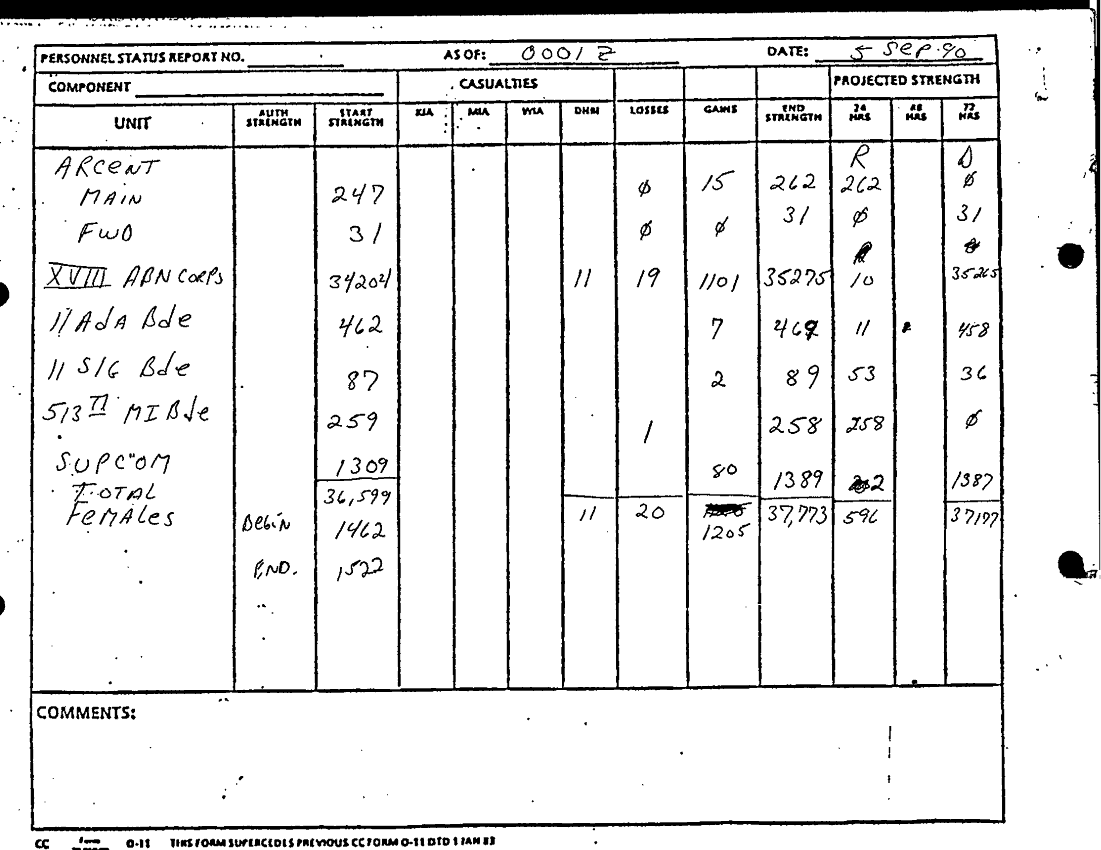 PERSONNEL STATUS REPORT NO. AS OF: 0001 Z DATE: 5 Sep 90
COMPONENT CASUALTIES PROJECTED STRENGTH
UNIT AUTH STRENGTH START STRENGTH KIA MIA WIA DHM LOSSES GAINS END STRENGTH 24 HRS 48 HRS 72 HRS
ARCENT R D
MAIN 247 ∅ 15 262 262 ∅
FWD 31 ∅ ∅ 31 ∅ 31
XVIII ABN CORPS 34204 11 19 1101 35275 10 35265
11 AdA Bde 462 7 469 11 458
11 SIG Bde 87 2 89 53 36
513 MI Bde 259 1 258 258 ∅
SUPCOM 1309 80 1389 2 1387
TOTAL 36,599 11 20 1205 37,773 596 37177
FEMALES Begin 1462
END. 1522
COMMENTS:
CC Form 0-11 THIS FORM SUPERCEDES PREVIOUS CC FORM 0-11 DTD 1 JAN 83